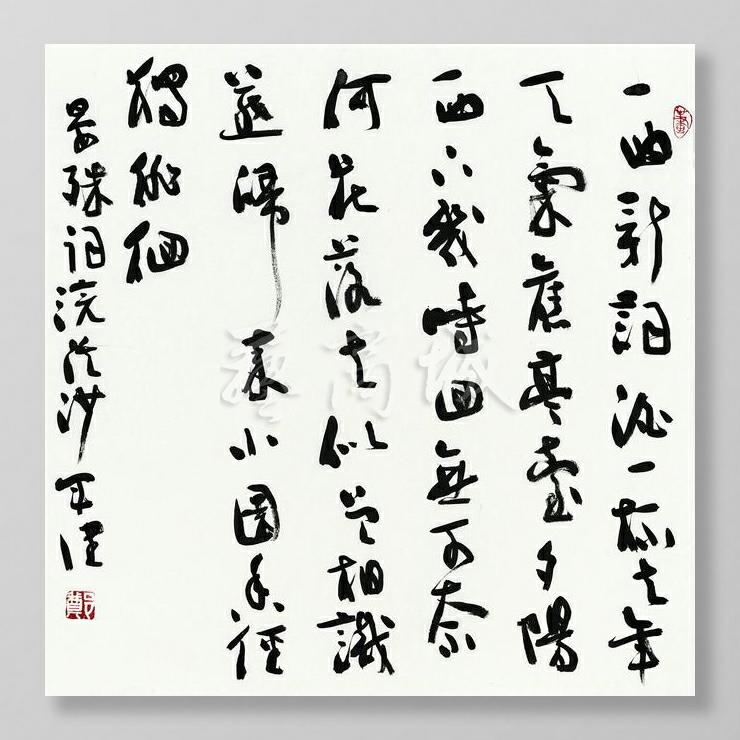 一曲新詞酒一杯去年
天氣舊亭臺夕陽
西下幾時回無可奈
何花落去似曾相識
燕歸來小園香徑
獨徘徊
晏殊詞浣溪沙